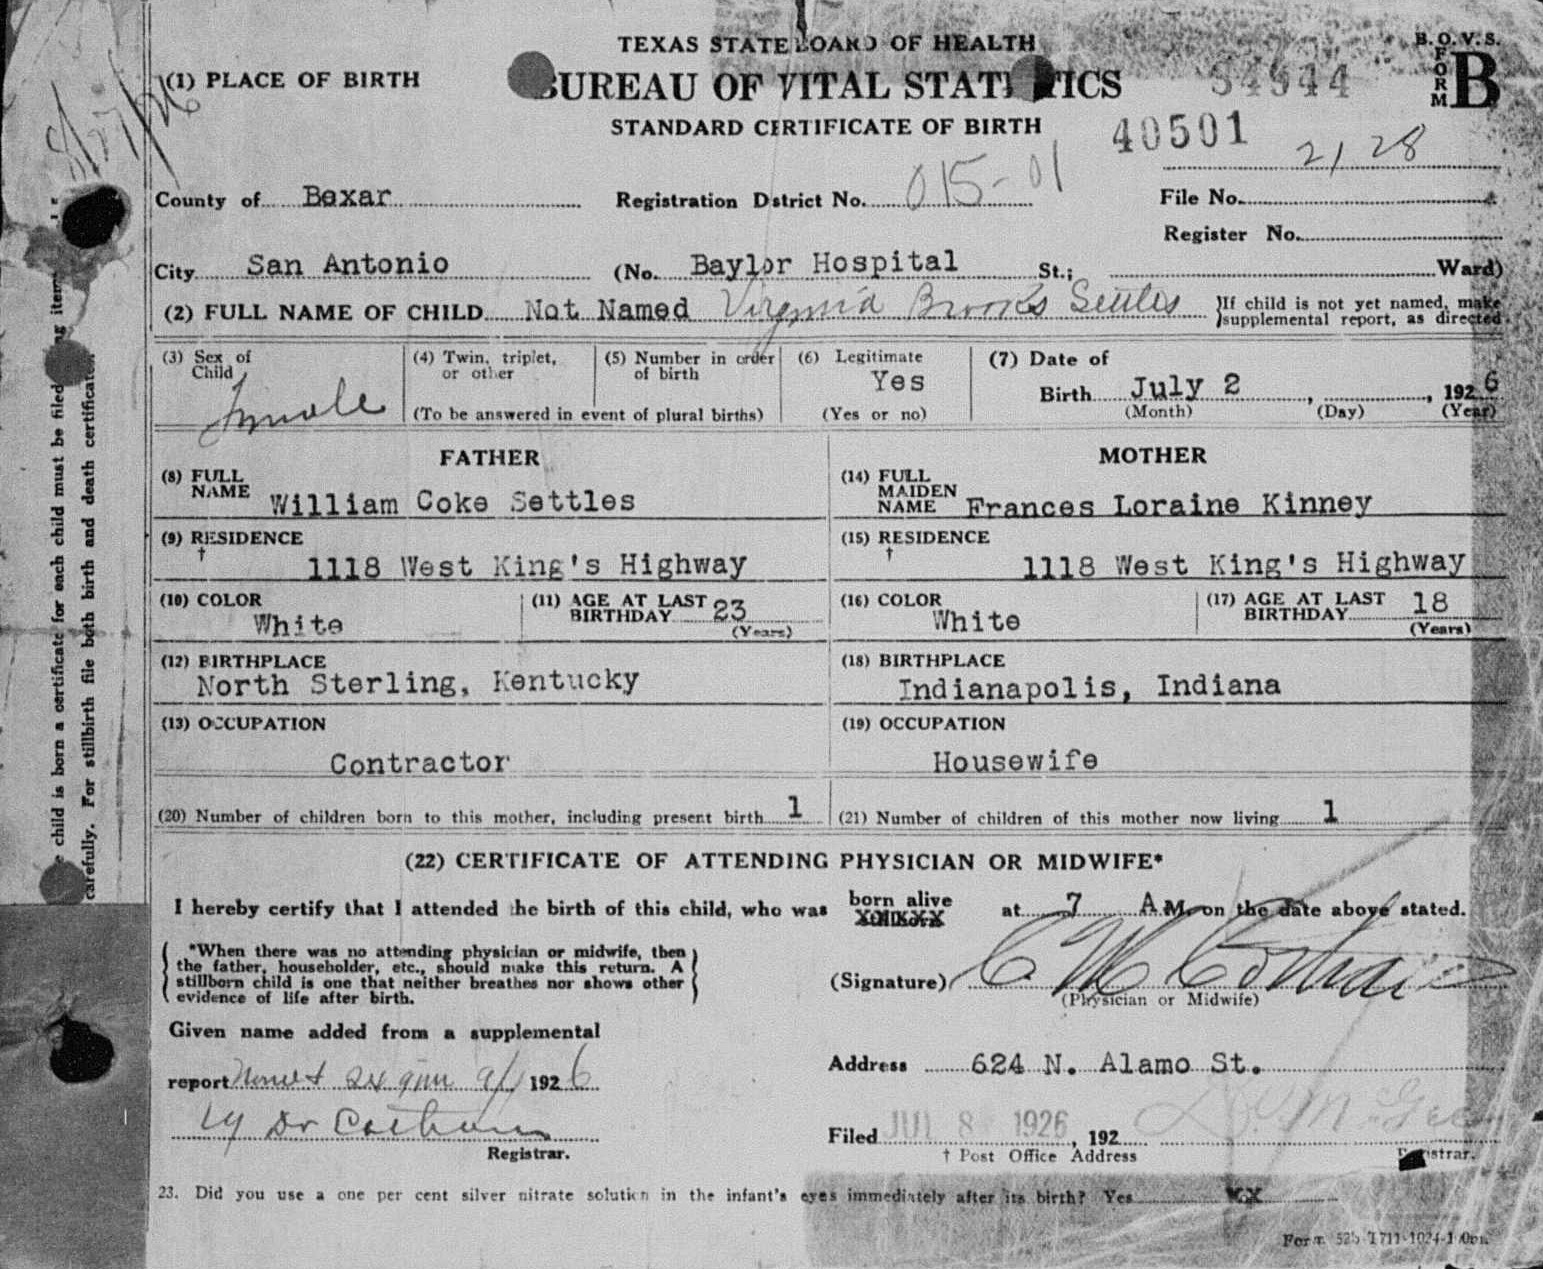 TEXAS STATE BOARD OF HEALTH
BUREAU OF VITAL STATISTICS
STANDARD CERTIFICATE OF BIRTH
B. O. V. S.
FORM B
34944
40501
2128
(1) PLACE OF BIRTH
County of Bexar Registration Dstrict No. 015-01 File No.
Register No.
City San Antonio (No. Baylor Hospital St.; Ward)
(2) FULL NAME OF CHILD Not Named Virginia Brooks Settles }If child is not yet named, make
}supplemental report, as directed
(3) Sex of Child Female
(4) Twin, triplet, or other
(5) Number in order of birth
(To be answered in event of plural births)
(6) Legitimate Yes
(Yes or no)
(7) Date of
Birth July 2, , 1926
(Month) (Day) (Year)
FATHER
(8) FULL NAME William Coke Settles
(9) RESIDENCE † 1118 West King's Highway
(10) COLOR White
(11) AGE AT LAST BIRTHDAY 23 (Years)
(12) BIRTHPLACE
North Sterling, Kentucky
(13) OCCUPATION
Contractor
MOTHER
(14) FULL MAIDEN NAME Frances Loraine Kinney
(15) RESIDENCE † 1118 West King's Highway
(16) COLOR White
(17) AGE AT LAST BIRTHDAY 18 (Years)
(18) BIRTHPLACE
Indianapolis, Indiana
(19) OCCUPATION
Housewife
(20) Number of children born to this mother, including present birth 1
(21) Number of children of this mother now living 1
(22) CERTIFICATE OF ATTENDING PHYSICIAN OR MIDWIFE*
I hereby certify that I attended the birth of this child, who was born alive at 7 A.M. on the date above stated.
*When there was no attending physician or midwife, then
the father, householder, etc., should make this return. A
stillborn child is one that neither breathes nor shows other
evidence of life after birth.
(Signature)
(Physician or Midwife)
Given name added from a supplemental
report 9/1 1926
Dr
Registrar.
Address 624 N. Alamo St.
Filed JUL 8 1926, 192
† Post Office Address Registrar.
23. Did you use a one per cent silver nitrate solution in the infant's eyes immediately after its birth? Yes XX
child is born a certificate for each child must be filed
carefully. For stillbirth file both birth and death certificate